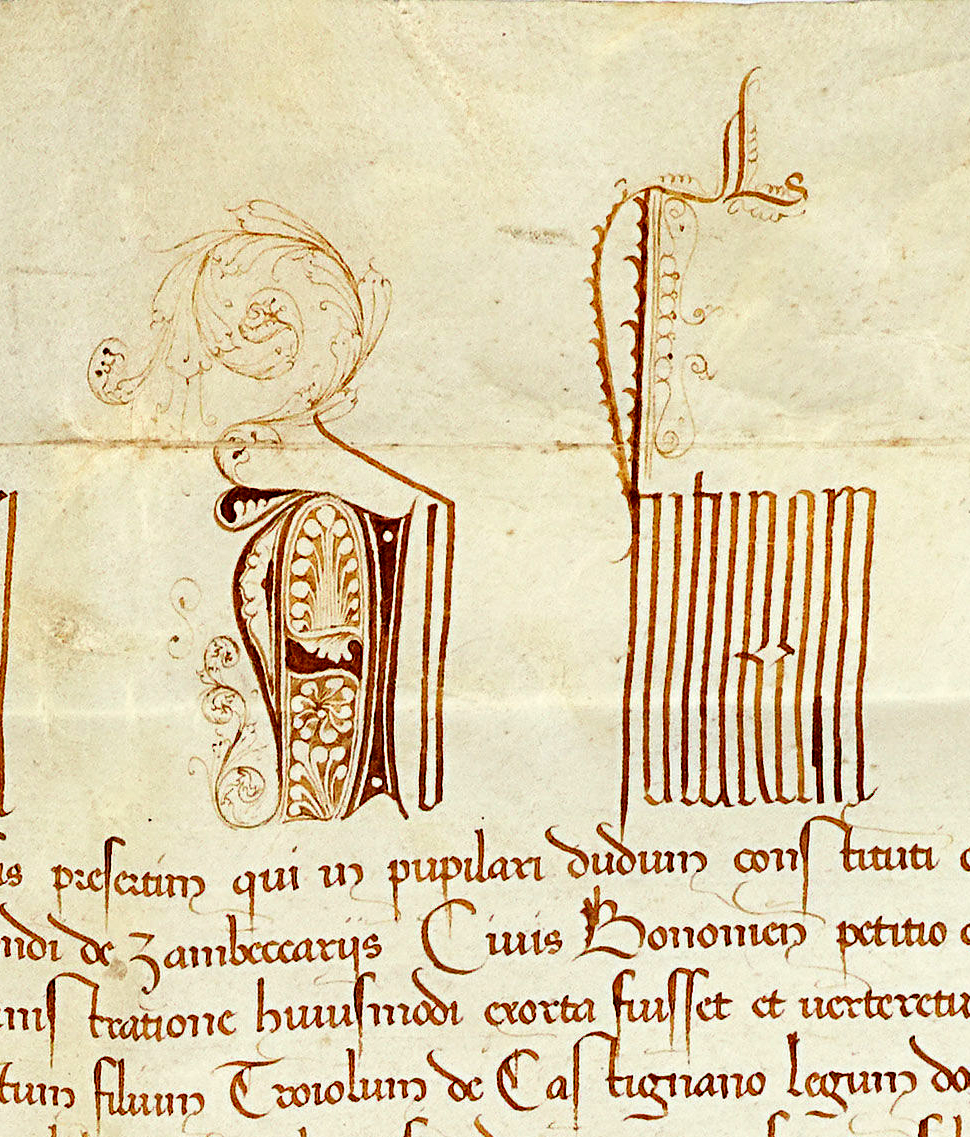 Ad futuram
is presertim qui in pupilari dudum constituti
ndi de Zambeccarijs Ciuis Bononien petitio
nistratione huiusmodi exorta fuisset et uerteretu
tum filium Troiolum de Castignano legum do